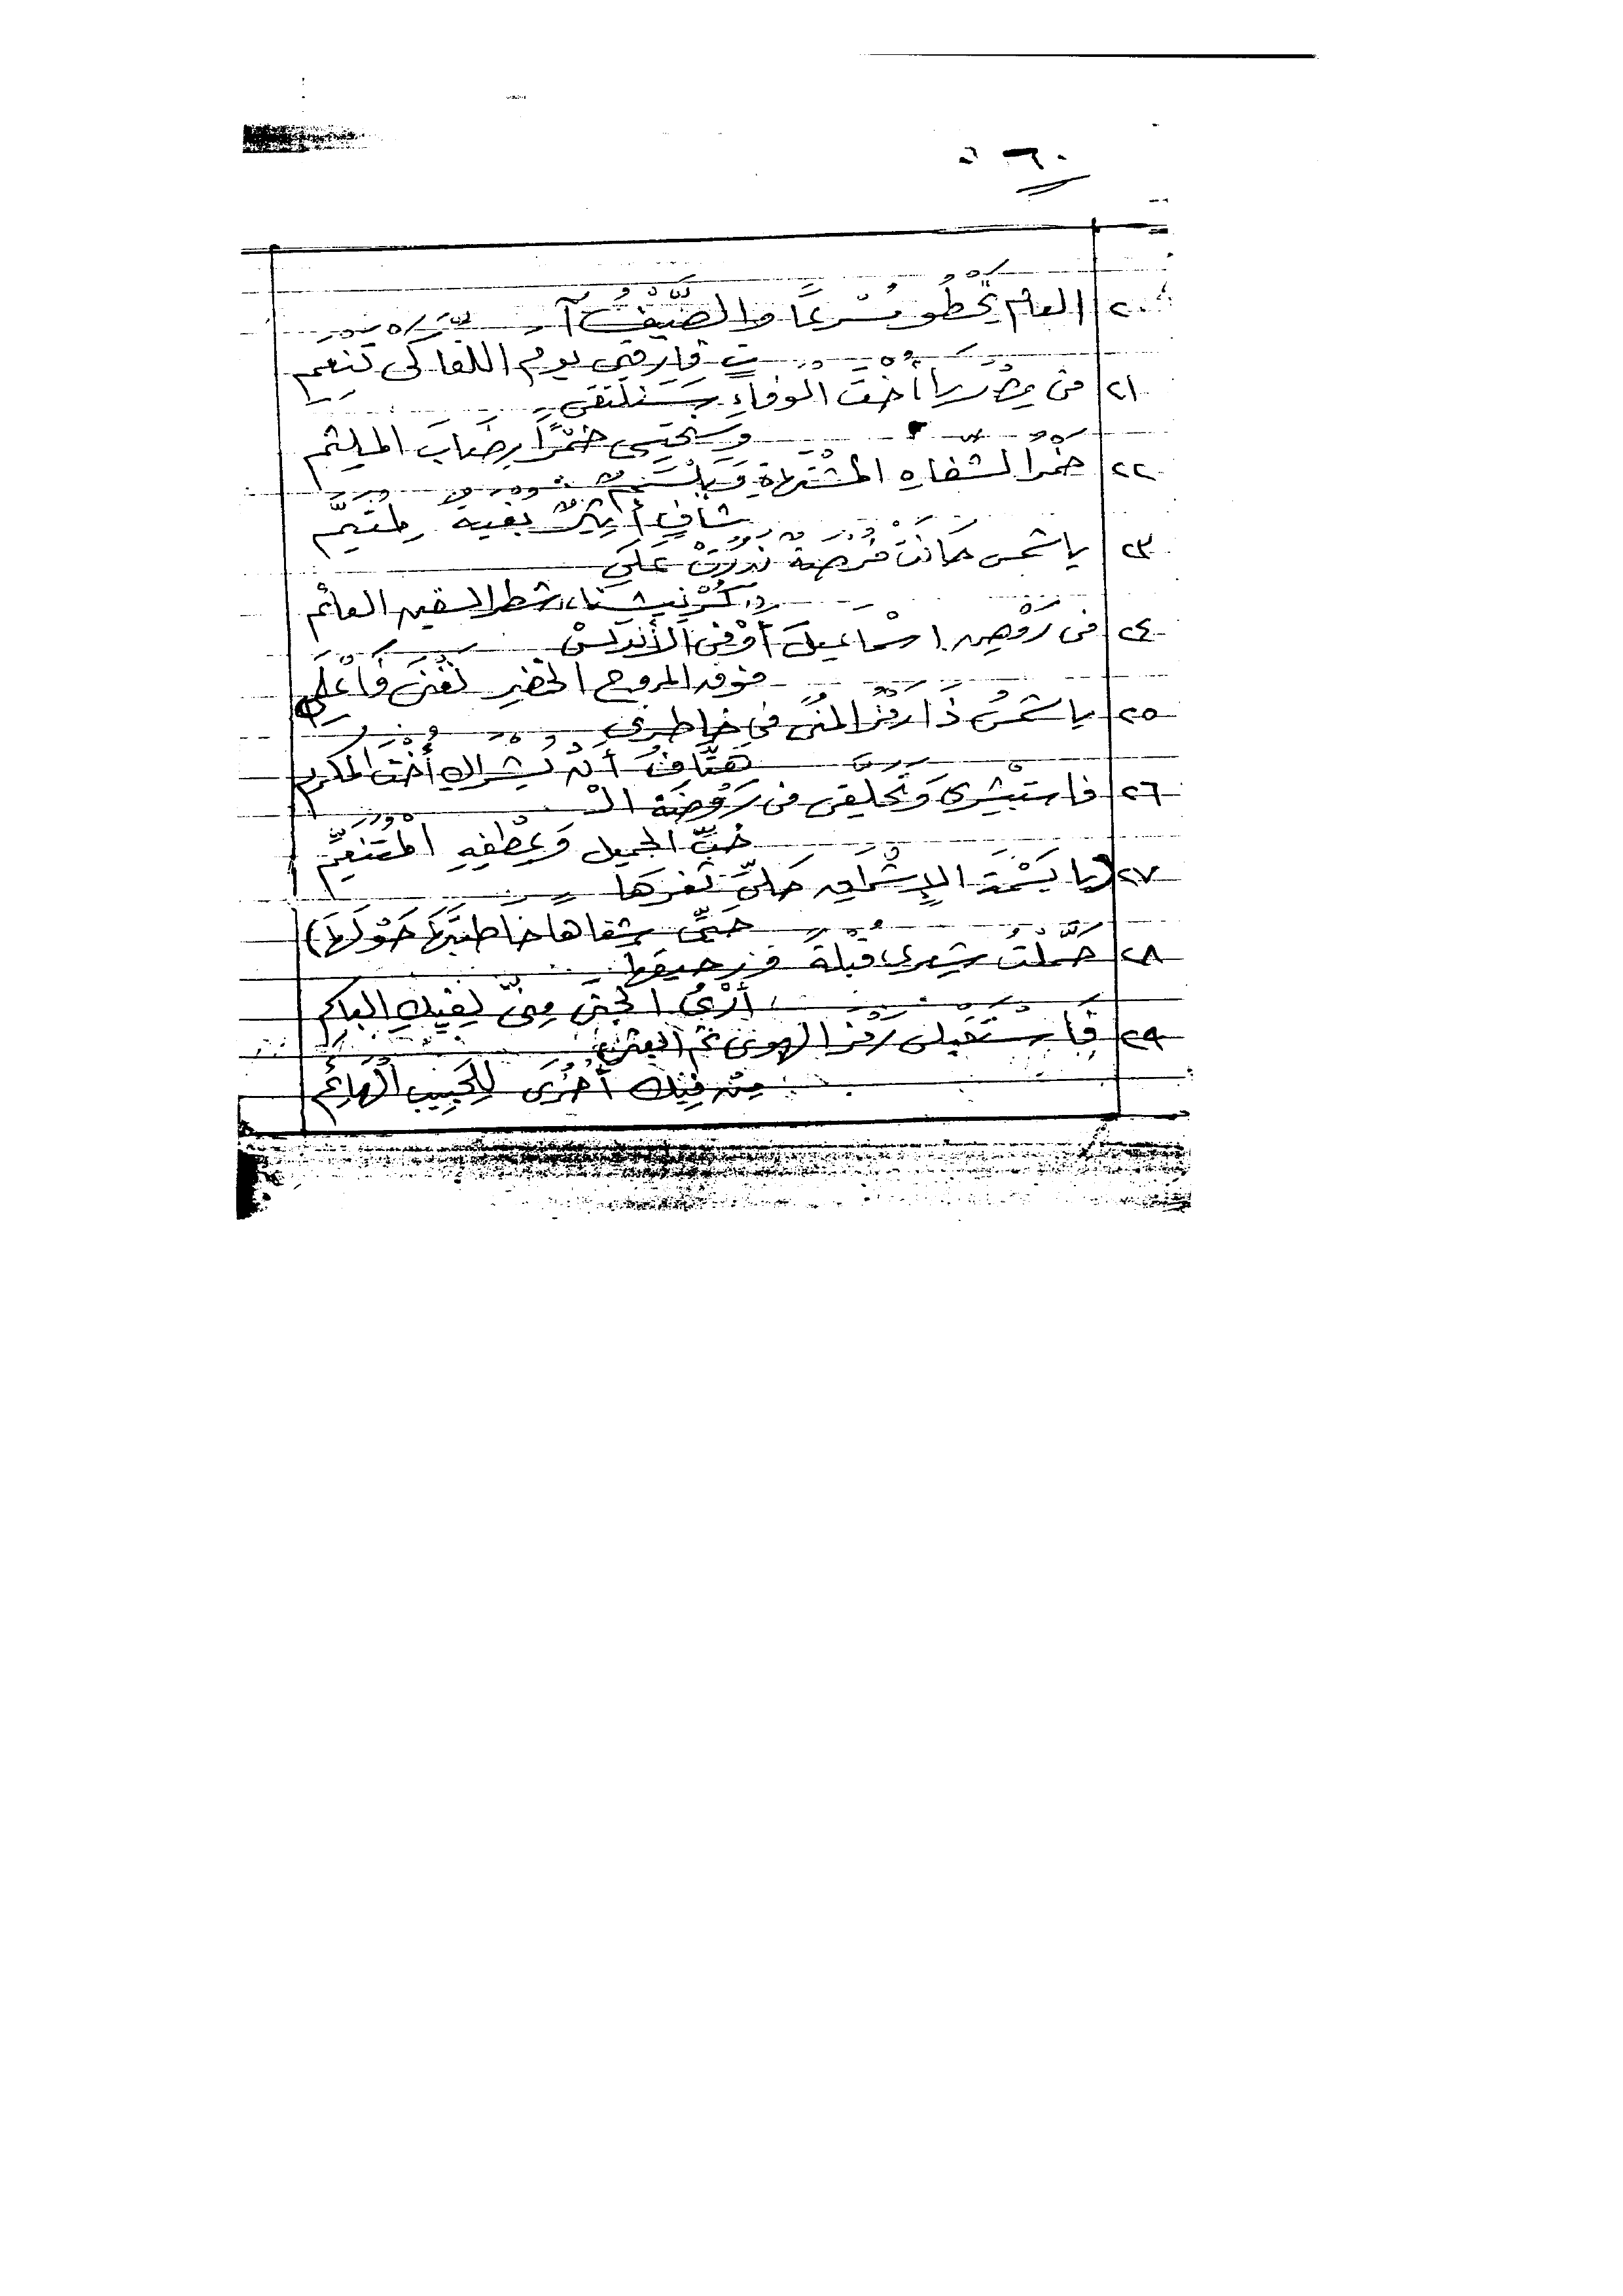 ٦٠
٢٠ العام يَخْطُو مُسْرِعًا والصَّيْفُ آ
تٍ فارقبي يوم اللقا كى تَنْعَمِى
٢١ فى مِصْرَ يا أُخْتَ الوفاءِ سَنلتقى
وسنحتسى خَمْرًا رضابَ الملثم
٢٢ خمرُ الشفاهِ المشْتَهاةِ وَبَلْسَمٌ
شافٍ أَثِيرٌ بغيةُ المتيَّمِ
٢٣ يا شمس كانَتْ فُرصةً نَدَرَتْ عَلَى
كُرْنِيشنا شطر السفين العائم
٢٤ فى رَوْضِ إسْماعيلَ أَوْ فى الأندلسْ
فوق المروج الخضْرِ نَغْنَى فَاعْلَمِى
٢٥ يا شمسُ ذَا رَمْزُ المُنَى فى خاطرى
هَتَّافُ أن بُشْراكِ أُخْتَ المكرم
٢٦ فاستبْشِرى وَتَحلَّقى فى رَوْضَةِ الْـ
حُبِّ الجميل وَعِطْفِهِ الْمُتنَعِّمِ
٢٧ (يا بَسْمَةَ الإِشْراقِ حَلِّى ثغرَهَا
حَتَّى شفاها خاطبَتْهَا حَوْلَهَا)
٢٨ حَمَّلْتُ شِعرى قُبْلَةً فرحيقها
أَرْىُ الجَنَى مِنِّى لِفِيكِ الباسم
٢٩ فَاسْتَقْبِلى رَمْزَ الهوى ثم ابعثى
مِنْ فِيك أُخْرَى لِلحَبِيبِ الْهائِمِ